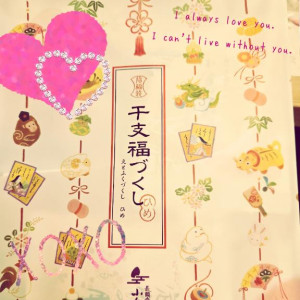 I always love you.
I can't live without you.
干支福づくし
ひめ
えとふくづくし ひめ